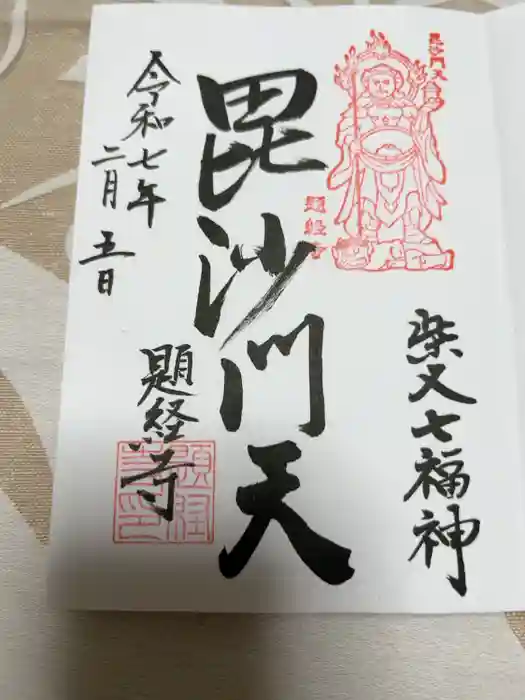 毘沙門天
題経寺
柴又七福神
毘沙門天
令和七年
二月五日
題経寺
題経寺印